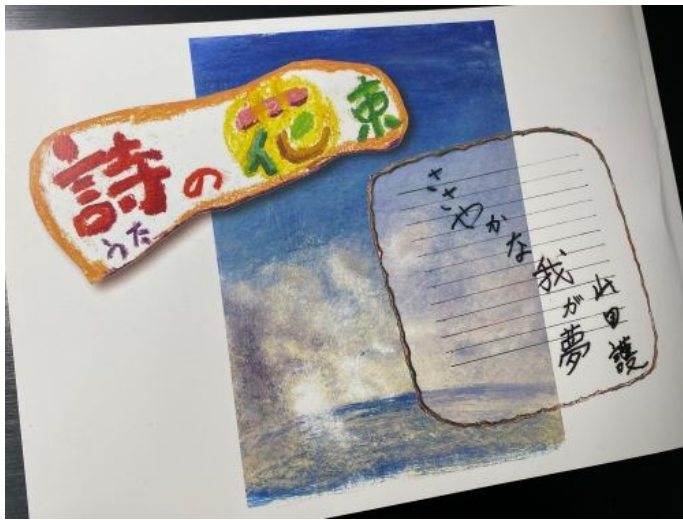 詩の花束
うた
ささやかな我が夢
山田護